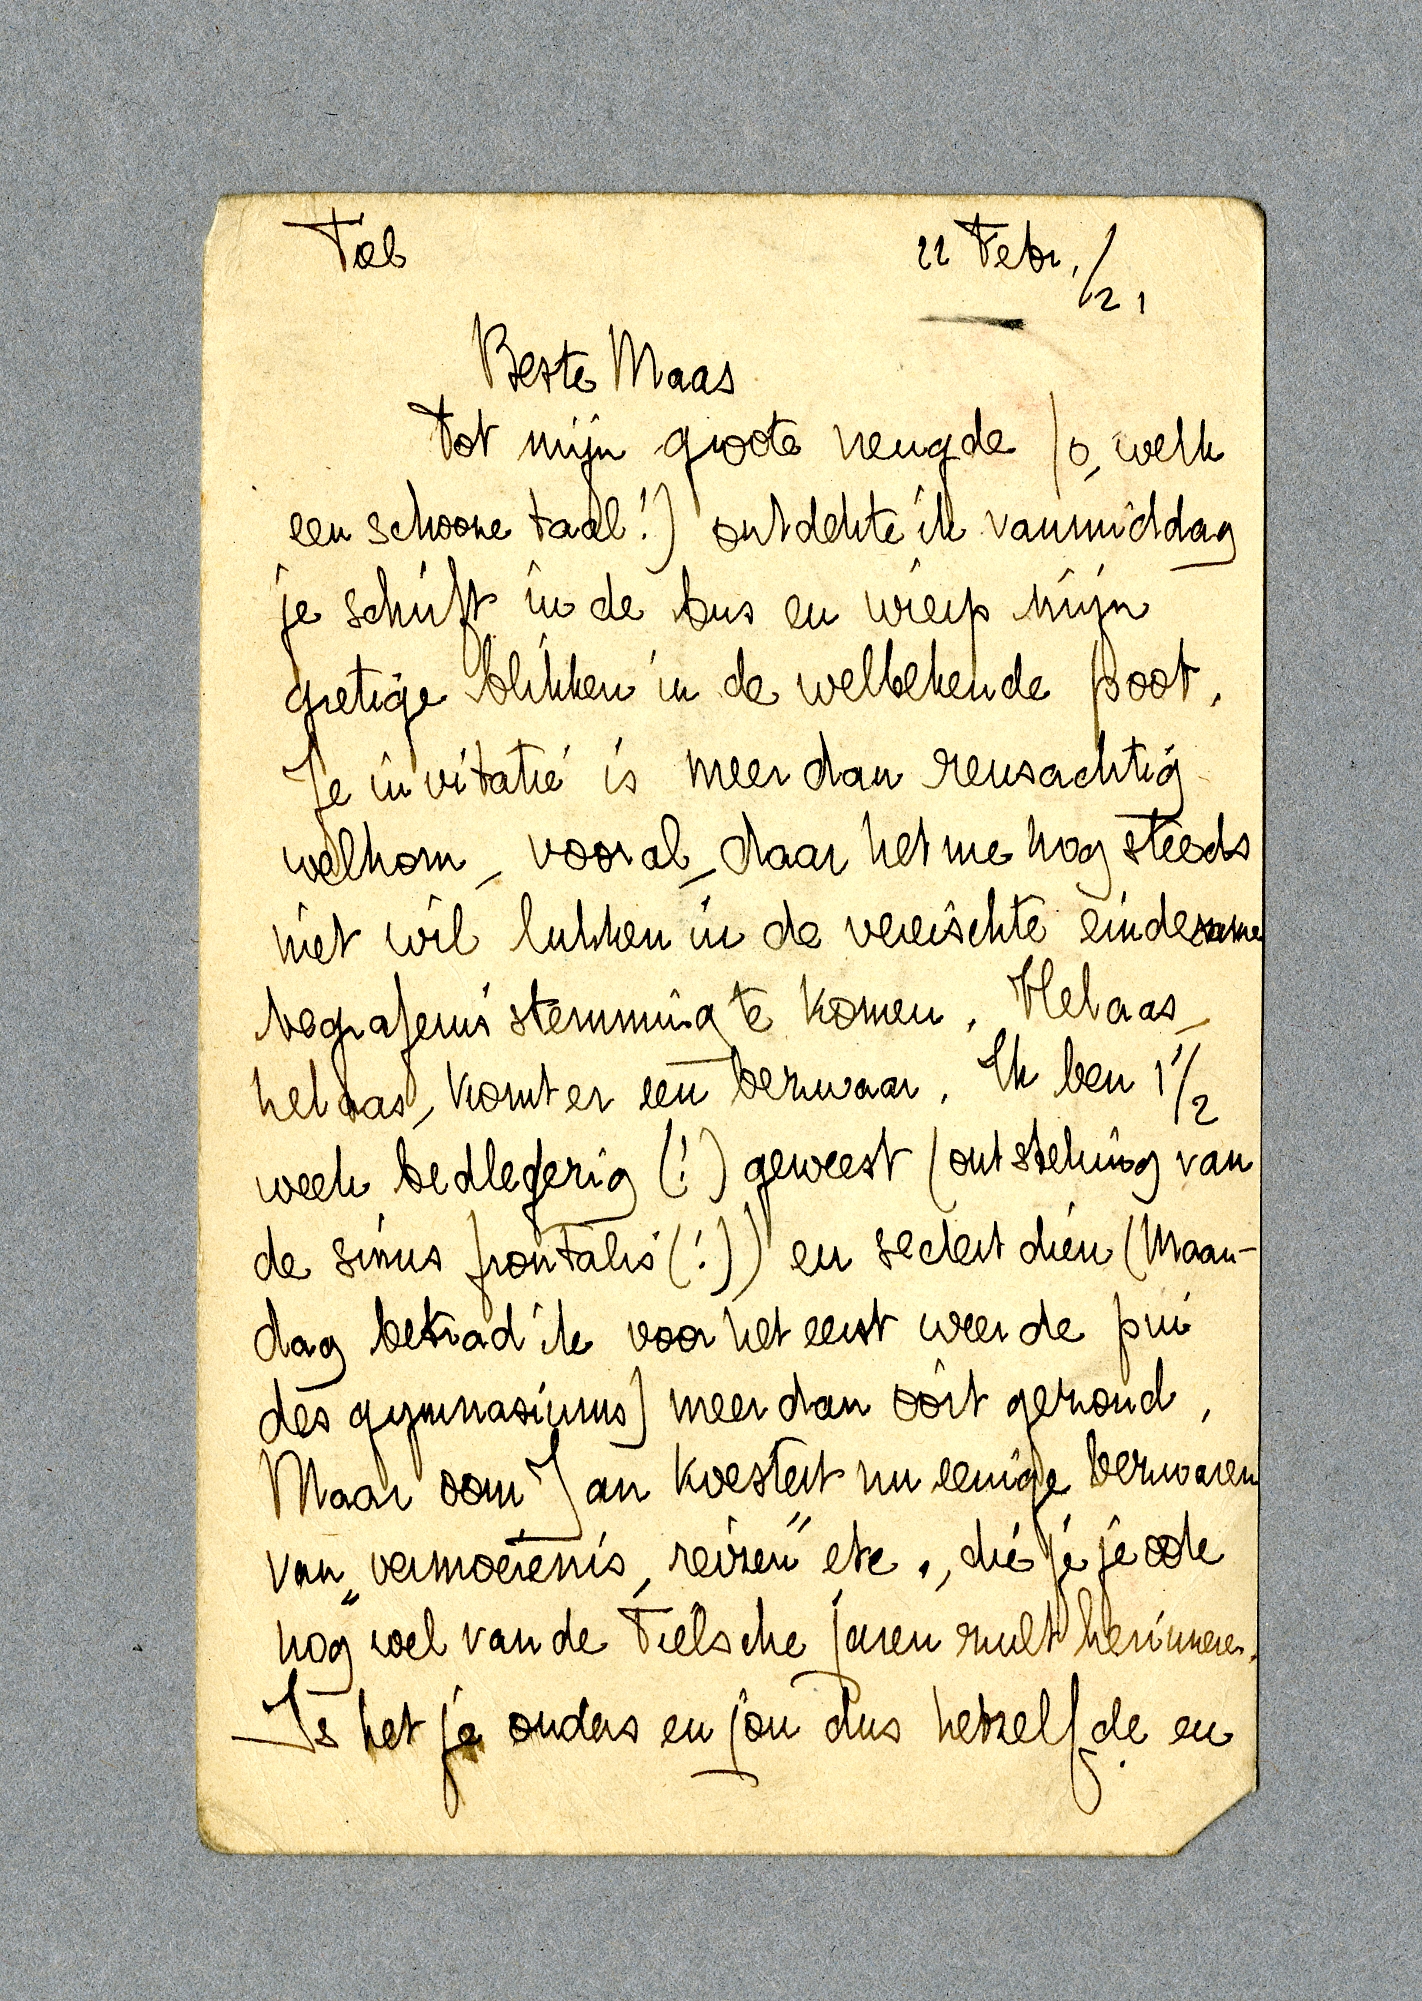 Tiel 22 Febr. /21
Beste Maas
Tot mijn groote vreugde (o, welk
een schoone taal!) ontdekte ik vanmiddag
je schrift in de bus en wierp mijn
gretige blikken in de welbekende poot.
Je invitatie is meer dan reusachtig
welkom, vooral, daar het me nog steeds
niet wil lukken in de vereischte
begrafenisstemming te komen. Helaas,
helaas, komt er een bezwaar. Ik ben 1 1/2
week bedlegerig (!) geweest (ontsteking van
de sinus frontalis (!)) en sedert dien (Maan-
dag betrad ik voor het eerst weer de pui
des gymnasiums) meer dan ooit gezond.
Maar oom Jan koestert nu eenige bezwaren
van „vermoeienis, reizen" etc., die je je ook
nog wel van de Tielsche jaren zult herinneren.
Is het je ouders en jou dus hetzelfde en